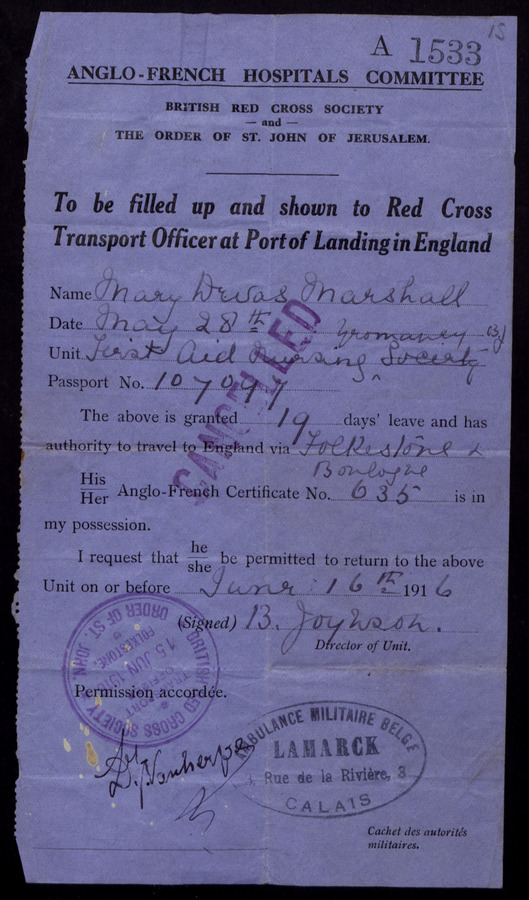 15
A 1533
ANGLO-FRENCH HOSPITALS COMMITTEE
BRITISH RED CROSS SOCIETY
— and —
THE ORDER OF ST. JOHN OF JERUSALEM.
To be filled up and shown to Red Cross
Transport Officer at Port of Landing in England
Name Mary Devas Marshall
Date May 28th
Yeomanry
Unit First Aid Nursing Society
Passport No. 107097
CANCELLED
The above is granted 19 days' leave and has
authority to travel to England via Folkestone &
Boulogne
His
Her Anglo-French Certificate No. 635 is in
my possession.
I request that he
she be permitted to return to the above
Unit on or before June 16th 1916
(Signed) B. Joynson.
Director of Unit.
BRITISH RED CROSS SOCIETY ORDER OF ST. JOHN
TRANSPORT OFFICER
15 JUN 1916
FOLKESTONE.
Permission accordée.
AMBULANCE MILITAIRE BELGE
LAMARCK
Rue de la Rivière, 3
CALAIS
Cachet des autorités
militaires.